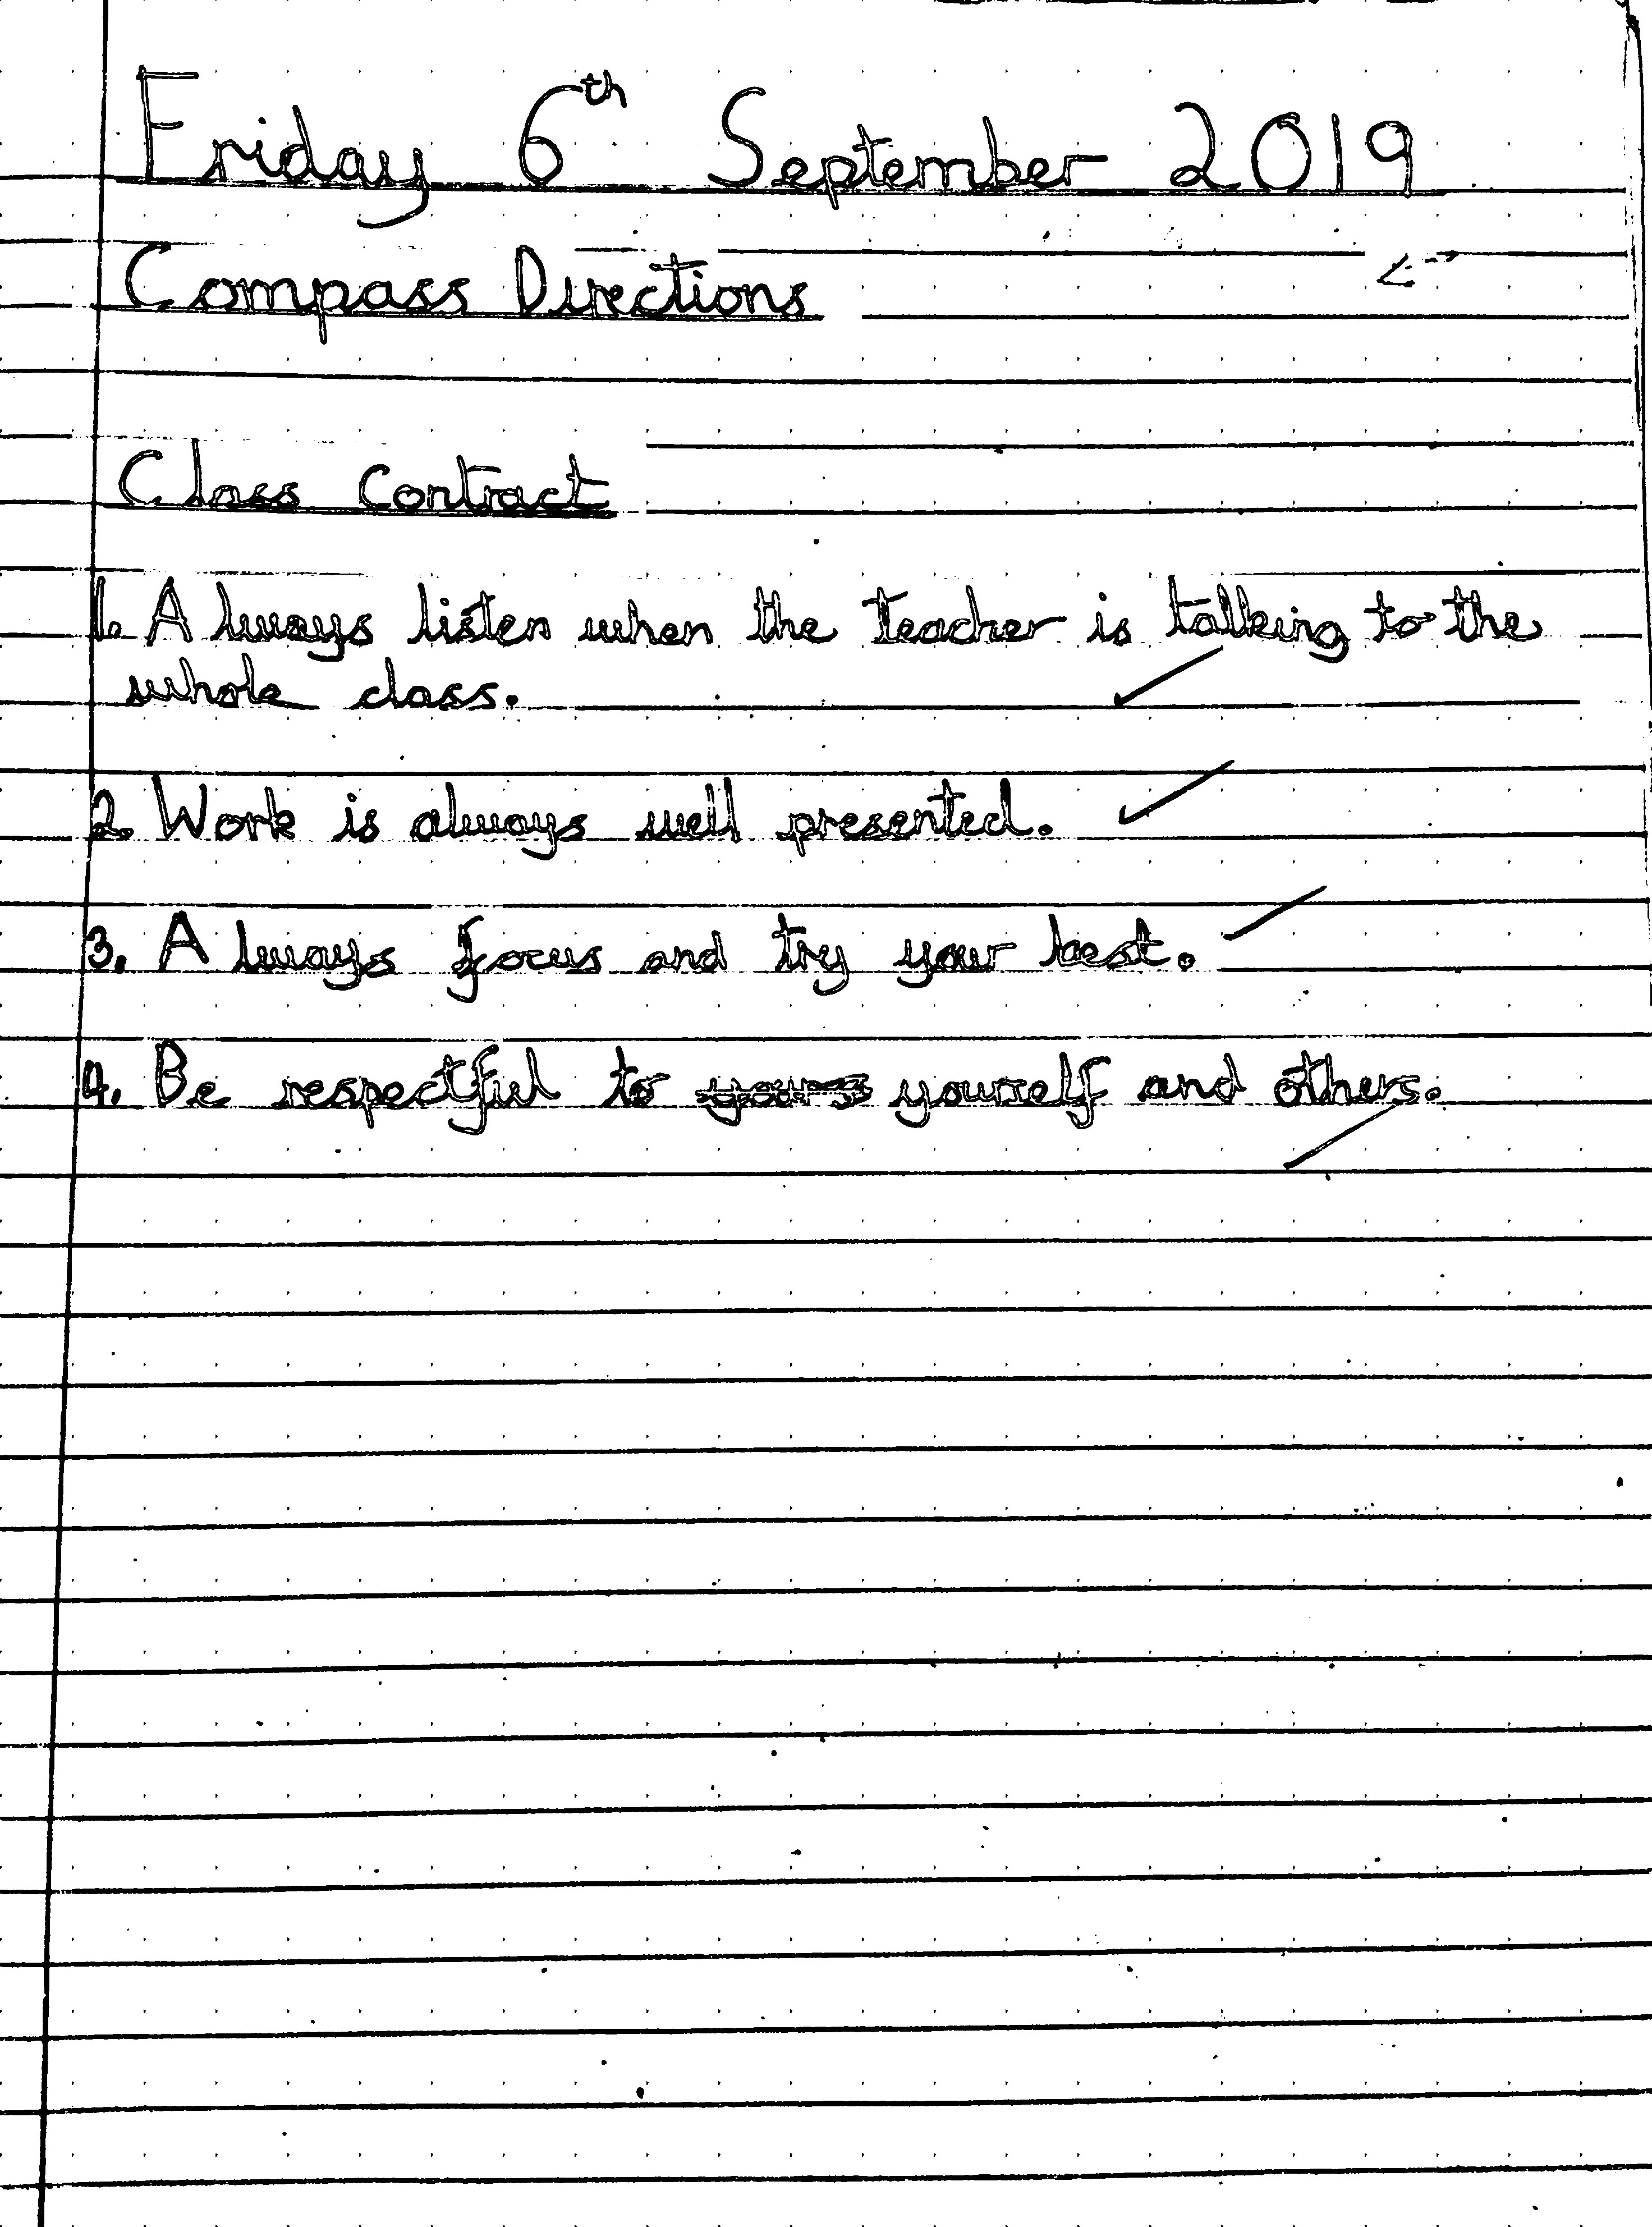 Friday 6th September 2019
Compass Directions
Class Contract
1. Always listen when the teacher is talking to the
whole class.
2. Work is always well presented.
3. Always focus and try your best.
4. Be respectful to yourself and others.